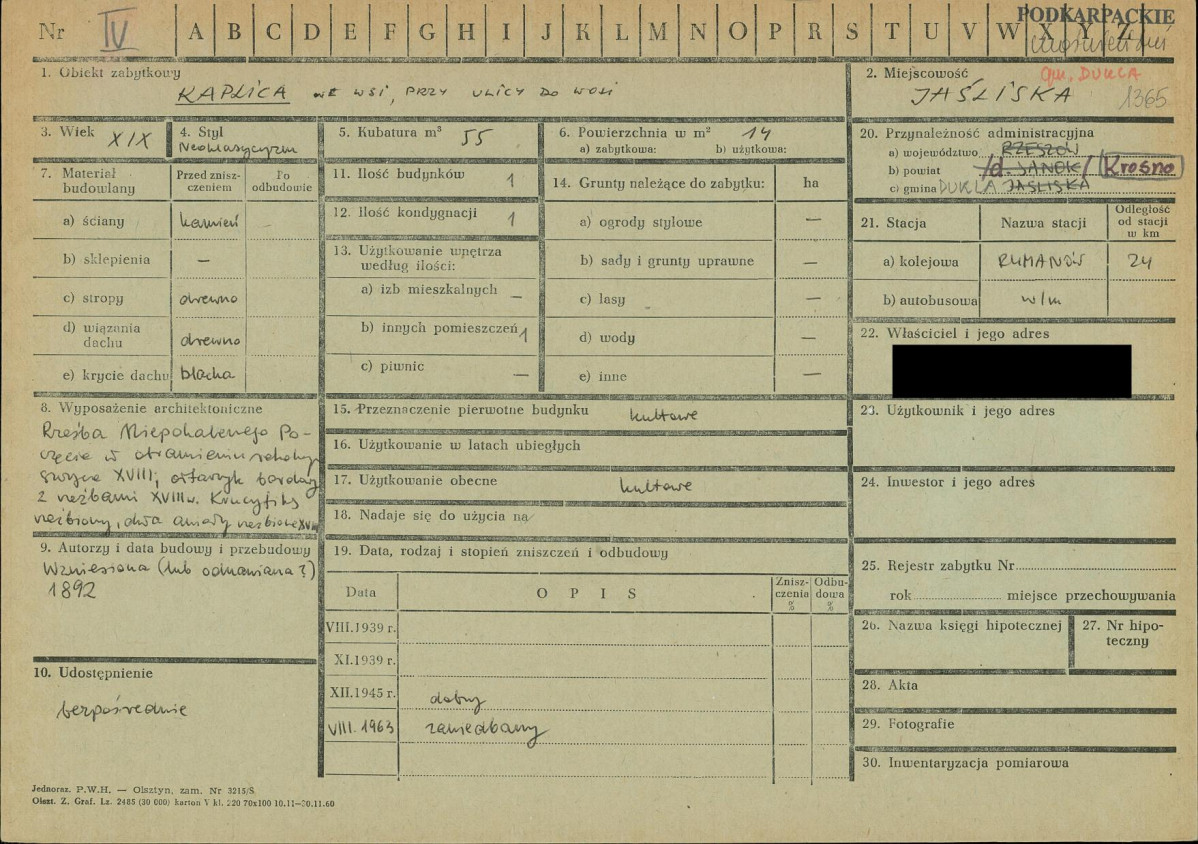 Nr IV A B C D E F G H I J K L M N O P R S T U V W X Y Z PODKARPACKIE
1. Obiekt zabytkowy
KAPLICA WE WSI, PRZY ULICY DO WOLI
2. Miejscowość gm. DUKLA
JAŚLISKA 1365
3. Wiek XIX
4. Styl
Neoklasycyzm
5. Kubatura m³ 55
6. Powierzchnia w m² 14
a) zabytkowa: b) użytkowa:
20. Przynależność administracyjna
a) województwo RZESZÓW
b) powiat /d. SANOK/ Krosno
c) gmina DUKLA JAŚLISKA
7. Materiał budowlany
Przed zniszczeniem
Po odbudowie
a) ściany kamień -
b) sklepienia —
c) stropy drewno
d) wiązania dachu drewno
e) krycie dachu blacha
11. Ilość budynków 1
12. Ilość kondygnacji 1
13. Użytkowanie wnętrza
według ilości:
a) izb mieszkalnych —
b) innych pomieszczeń 1
c) piwnic —
14. Grunty należące do zabytku: ha
a) ogrody stylowe —
b) sady i grunty uprawne —
c) lasy —
d) wody —
e) inne —
21. Stacja Nazwa stacji Odległość od stacji w km
a) kolejowa RYMANÓW 24
b) autobusowa w/m
22. Właściciel i jego adres
8. Wyposażenie architektoniczne
Rzeźba Niepokalanego Po-
częcia w obramieniu rokoko
XVIII, ołtarzyk
z rzeźbami XVIII w. Krucyfiks
rzeźbiony, dwa anioły rzeźbione XVIII
15. Przeznaczenie pierwotne budynku kultowe
16. Użytkowanie w latach ubiegłych
17. Użytkowanie obecne kultowe
18. Nadaje się do użycia na
23. Użytkownik i jego adres
24. Inwestor i jego adres
9. Autorzy i data budowy i przebudowy
Wzniesiona (lub odnawiana?)
1892
10. Udostępnienie
bezpośrednie
19. Data, rodzaj i stopień zniszczeń i odbudowy
Data OPIS Zniszczenia % Odbudowa %
VIII.1939 r.
XI.1939 r.
XII.1945 r. dobry
VIII. 1963 zaniedbany
25. Rejestr zabytku Nr
rok miejsce przechowywania
26. Nazwa księgi hipotecznej
27. Nr hipo-
teczny
28. Akta
29. Fotografie
30. Inwentaryzacja pomiarowa
Jednoraz. P.W.H. — Olsztyn, zam. Nr 3215/S.
Olszt. Z. Graf. Lz. 2485 (30 000) karton V kl. 220 70x100 10.11—30.11.60